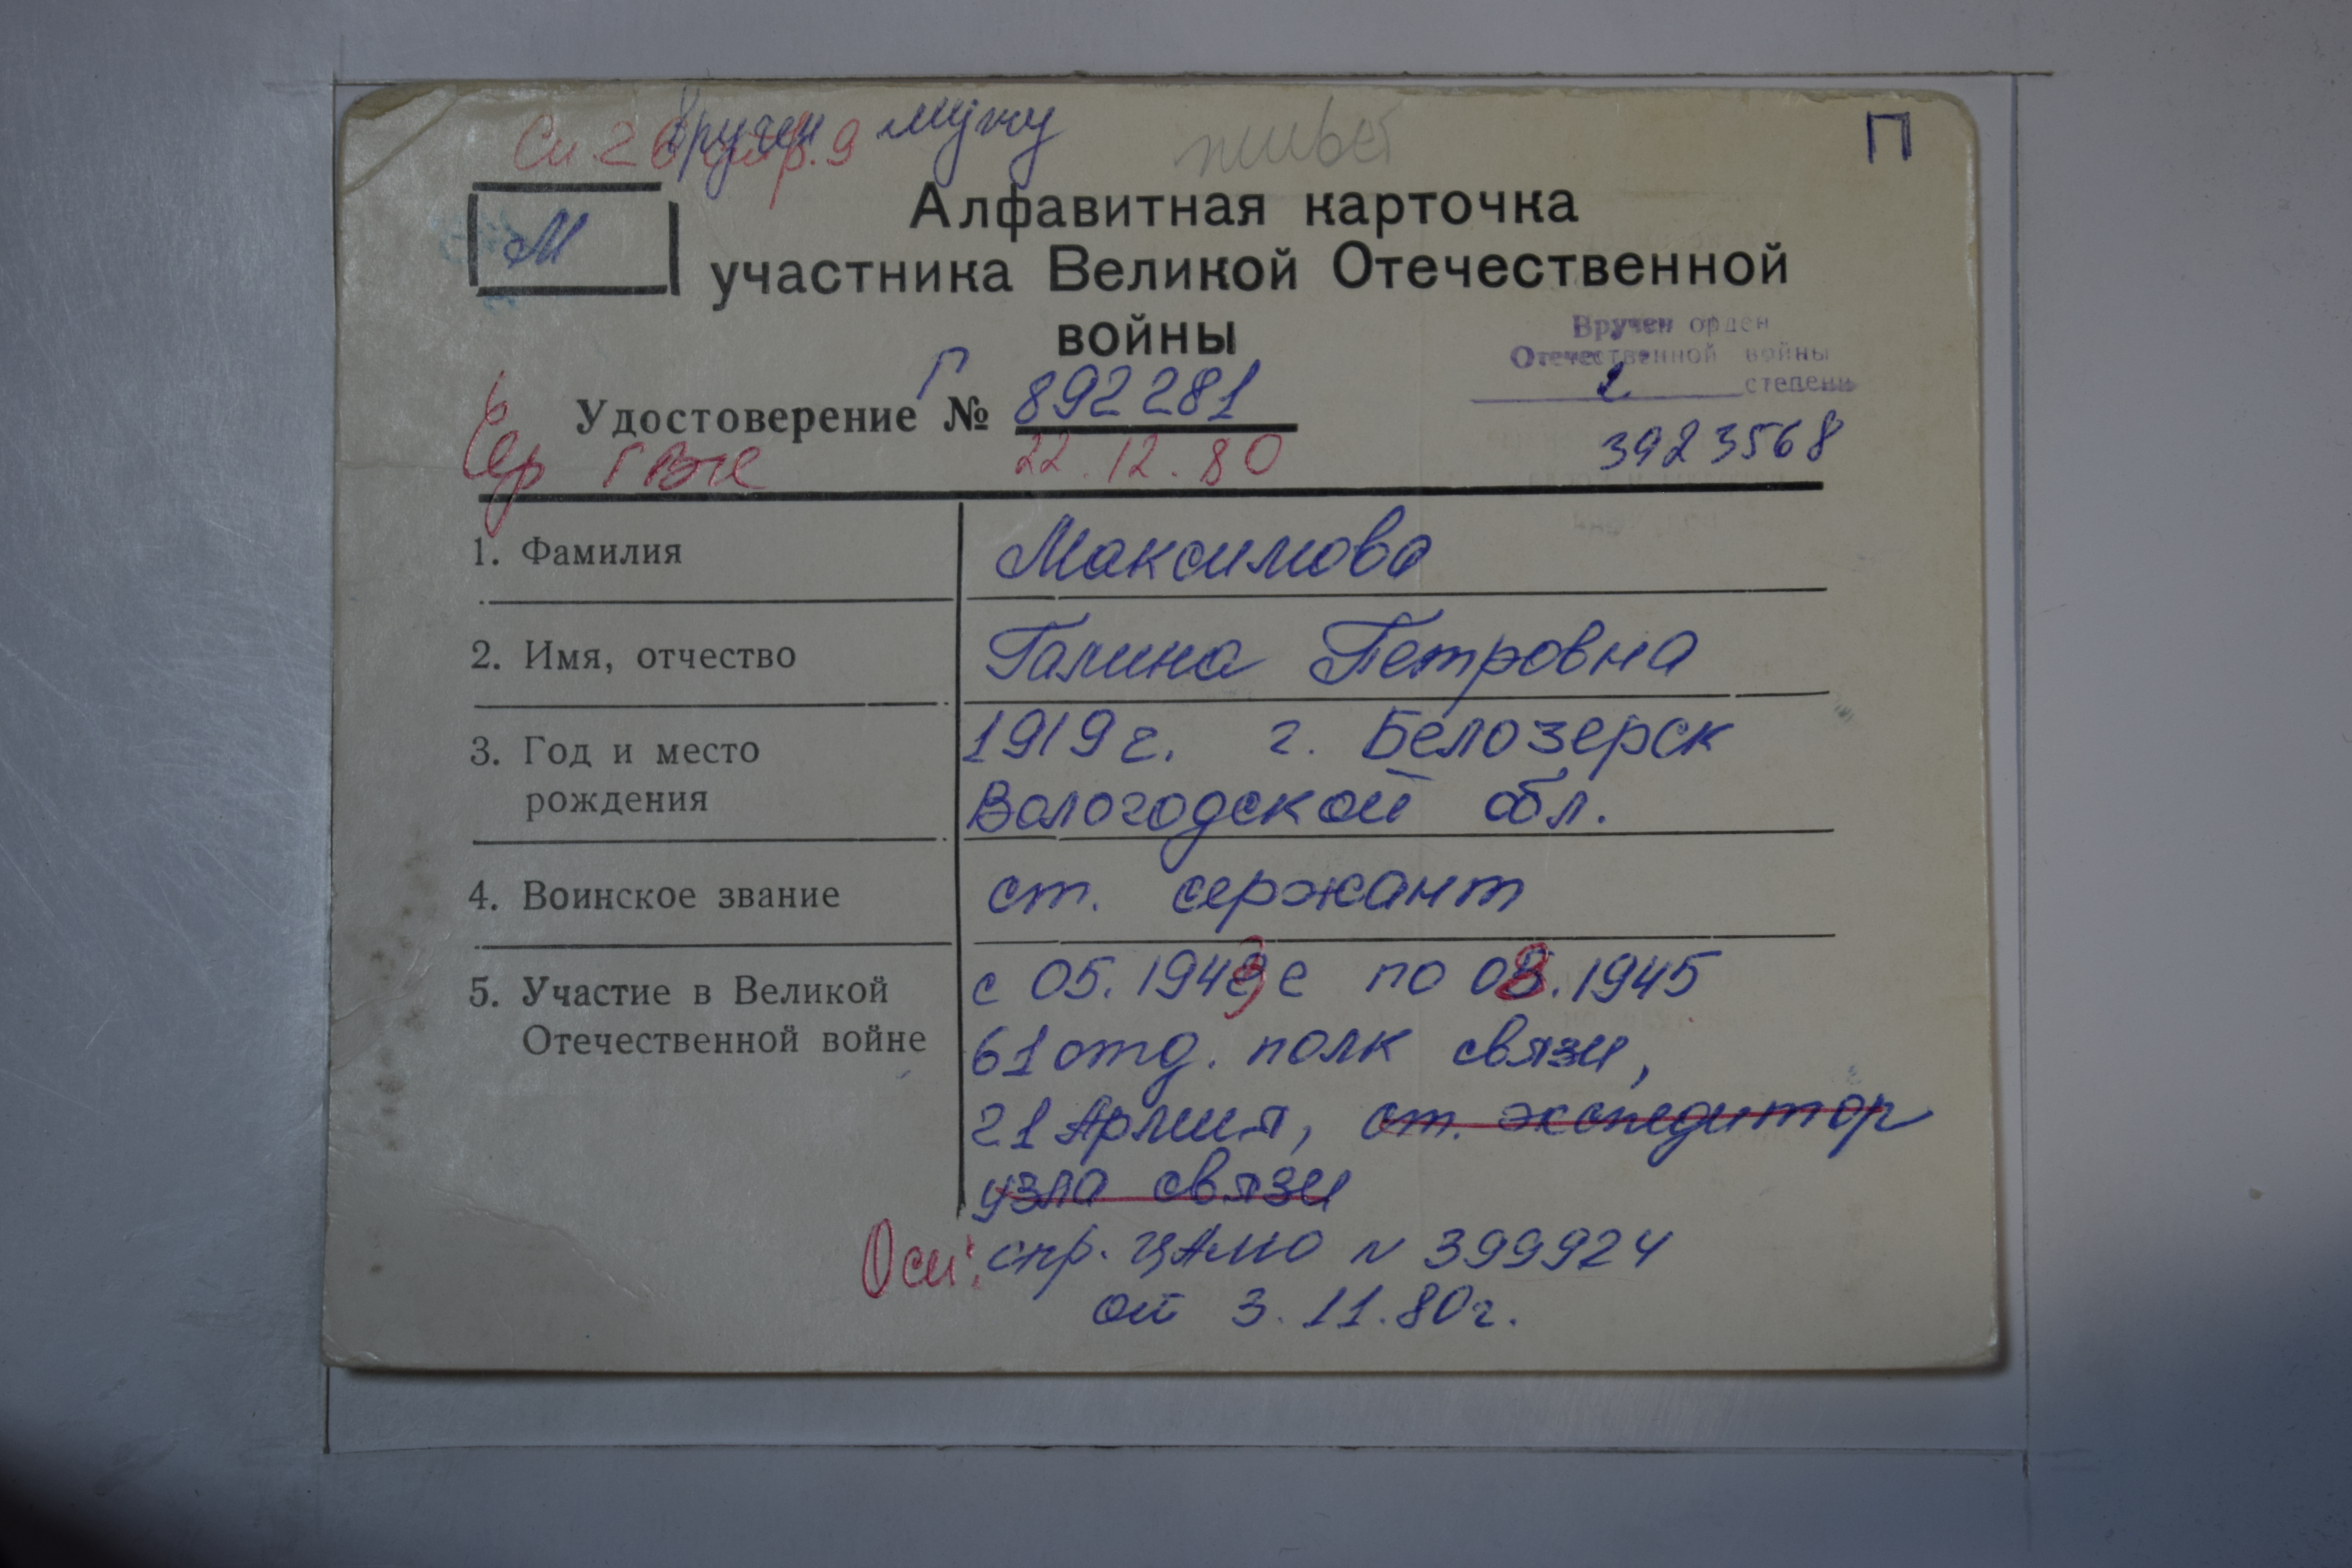 вручен мужу
П
М
Алфавитная карточка
участника Великой Отечественной
войны
Вручен орден
Отечественной войны
2 степени
3923568
Удостоверение Г № 892281
22.12.80
1. Фамилия Максимова
2. Имя, отчество Галина Петровна
3. Год и место рождения 1919 г. г. Белозерск
Вологодской обл.
4. Воинское звание ст. сержант
5. Участие в Великой Отечественной войне с 05.1943 г по 08.1945
61 отд. полк связи,
21 Армия, ст. экспедитор
узла связи
Осн: спр. ЦАМО N 399924
от 3.11.80г.